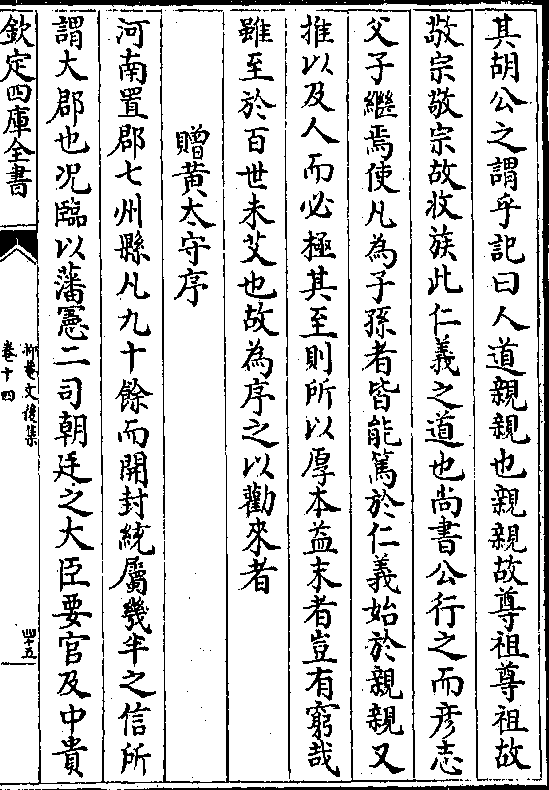 其胡公之謂乎記曰人道親親也親親故尊祖尊祖故
敬宗敬宗故收族此仁義之道也尚書公行之而彦志
父子繼焉使凡為子孫者皆能篤於仁義始於親親又
推以及人而必極其至則所以厚本益末者豈有窮哉
雖至於百世未艾也故為序之以勸來者
贈黄太守序
河南置郡七州縣凡九十餘而開封統屬幾半之信所
謂大郡也况臨以藩憲二司朝廷之大臣要官及中貴
欽定四庫全書
抑菴文後集
卷十四
四十五